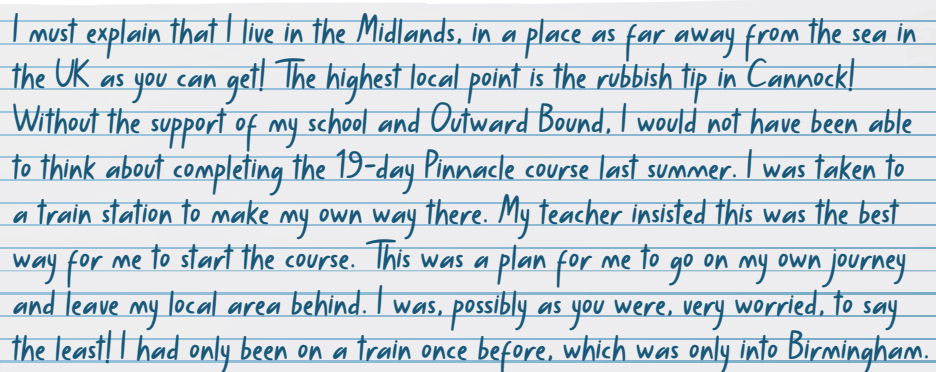 I must explain that I live in the Midlands, in a place as far away from the sea in
the UK as you can get! The highest local point is the rubbish tip in Cannock!
Without the support of my school and Outward Bound, I would not have been able
to think about completing the 19-day Pinnacle course last summer. I was taken to
a train station to make my own way there. My teacher insisted this was the best
way for me to start the course. This was a plan for me to go on my own journey
and leave my local area behind. I was, possibly as you were, very worried, to say
the least! I had only been on a train once before, which was only into Birmingham.